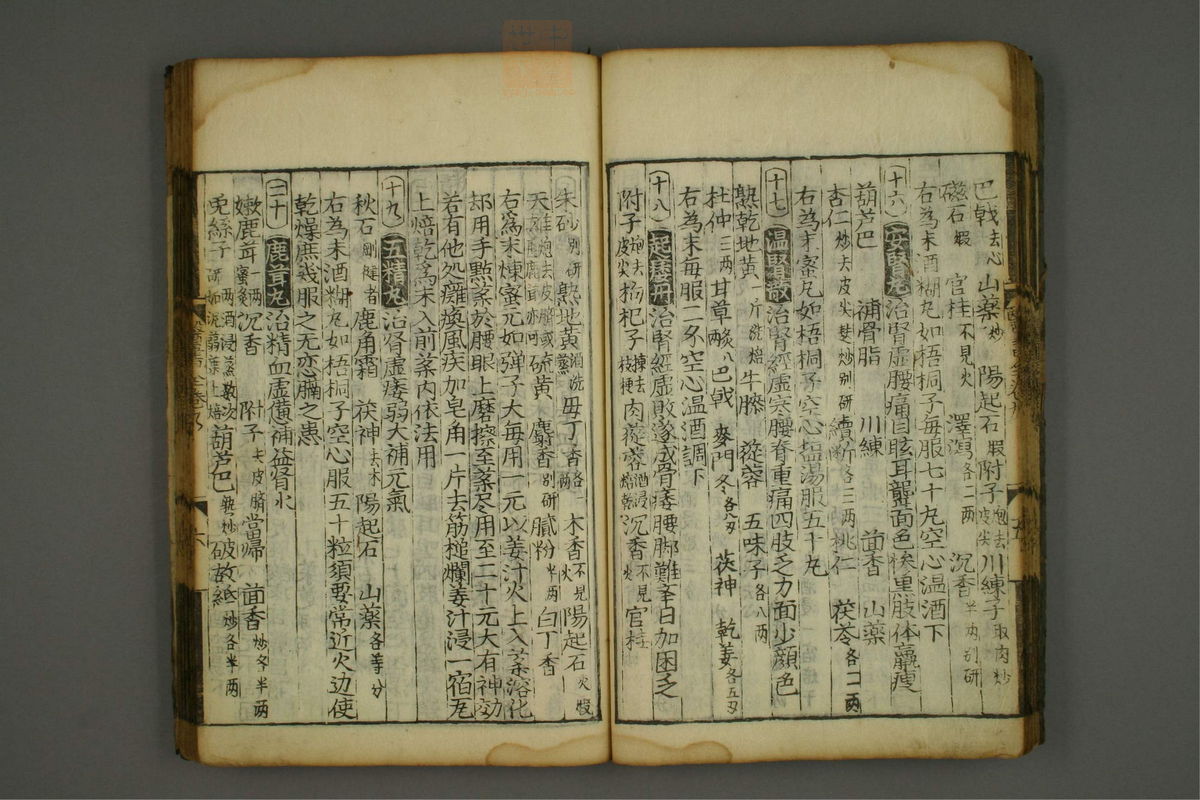 巴戟去心 山藥炒 陽起石煅 附子炮去皮尖 川練子取肉炒
磁石煅 官桂不見火 澤瀉各二兩 沉香半兩別研
右為末酒糊丸如梧桐子每服七十丸空心温酒下
十六 安腎丸 治腎虛腰痛目眩耳聾面色慘黑肢体羸瘦
葫芦巴 補骨脂 川練 茴香 山藥
杏仁炒去皮尖 續断各三兩 桃仁 茯苓各二兩
右為末蜜丸如梧桐子空心塩湯服五十丸
十七 温腎散 治腎經虛寒腰脊重痛四肢乏力面少顔色
熟乾地黃一斤 牛膝 蓯蓉 五味子各八兩
杜仲三兩 甘草炙八兩 巴戟 麥門冬各八刄 茯神 乾姜各五刄
右為末每服二匁空心温酒調下
十八 起痿丹 治腎經虛敗遂成骨痿腰脚難辛日加困乏
附子炮去皮尖 枸杞子揀去枝梗 肉蓯蓉酒浸焙乾 沉香不見火 官桂
朱砂别研 熟地黃酒洗 母丁香各一兩 木香不見火 陽起石火煅
天雄炮去皮臍或 硫黃 麝香别研 膩粉半兩 白丁香
右為末煉蜜元如弹子大每用一元以姜汁火上入藥溶化
却用手點藥於腰眼上磨擦至藥尽用至二十元大有神効
若有他処癱瘓風疾加皂角一片去筋搥爛姜汁浸一宿瓦
上焙乾為末入前藥内依法用
十九 五精丸 治腎虛痿弱大補元氣
秋石剛健者 鹿角霜 茯神去木 陽起石 山藥各等分
右為末酒糊丸如梧桐子空心服五十粒須要常近火边使
乾燥庶幾服之无恋膈之患
二十 鹿茸丸 治精血虛憊補益腎水
嫩鹿茸一兩蜜炙 沉香 附子去皮臍 當歸 茴香炒各半兩
兔絲子研 葫芦巴 破故紙炒各半兩